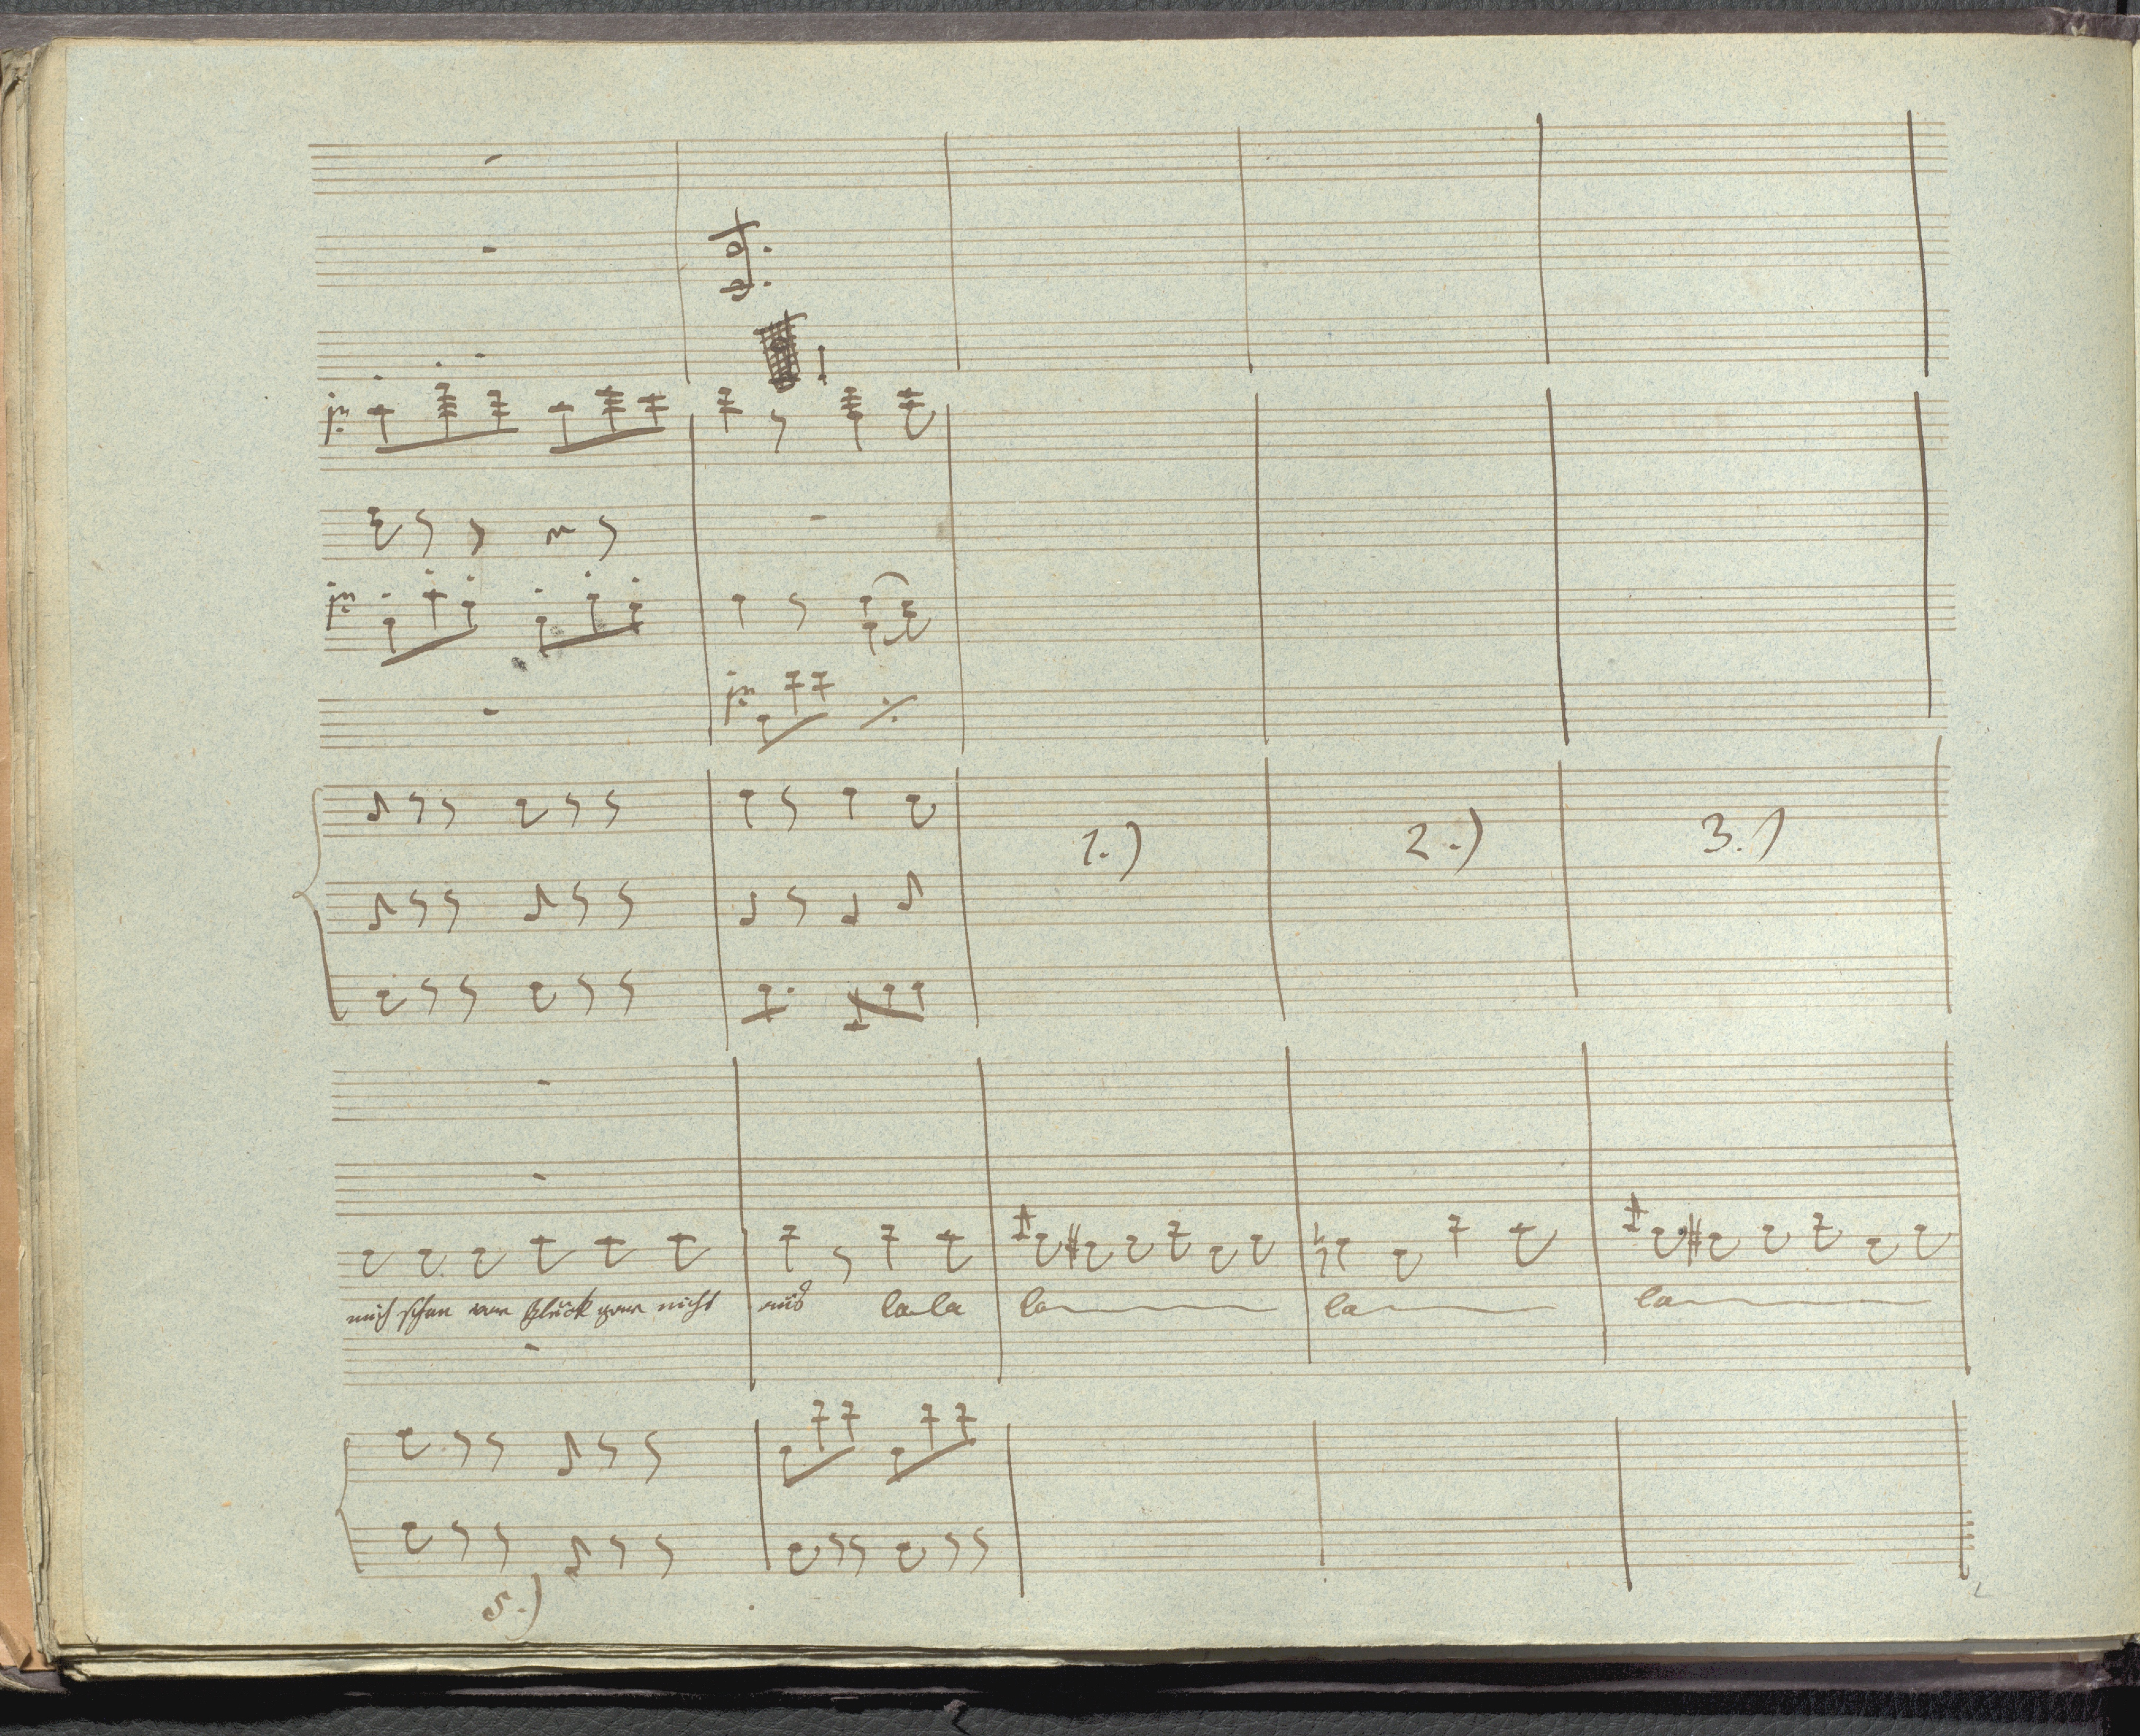 1.) 2.) 3.)
mich schon vor Glück gar nicht aus la la la la la
5.)